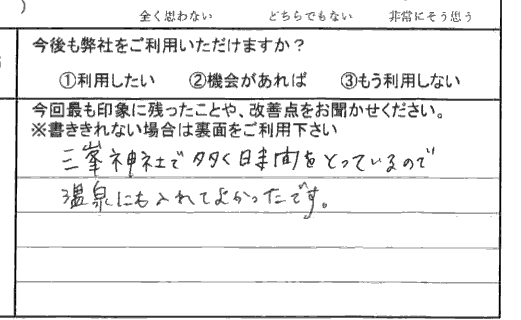 )
全く思わない どちらでもない 非常にそう思う
今後も弊社をご利用いただけますか？
①利用したい ②機会があれば ③もう利用しない
今回最も印象に残ったことや、改善点をお聞かせください。
※書ききれない場合は裏面をご利用下さい
三峯神社で多く時間をとっているので
温泉にも入れてよかったです。